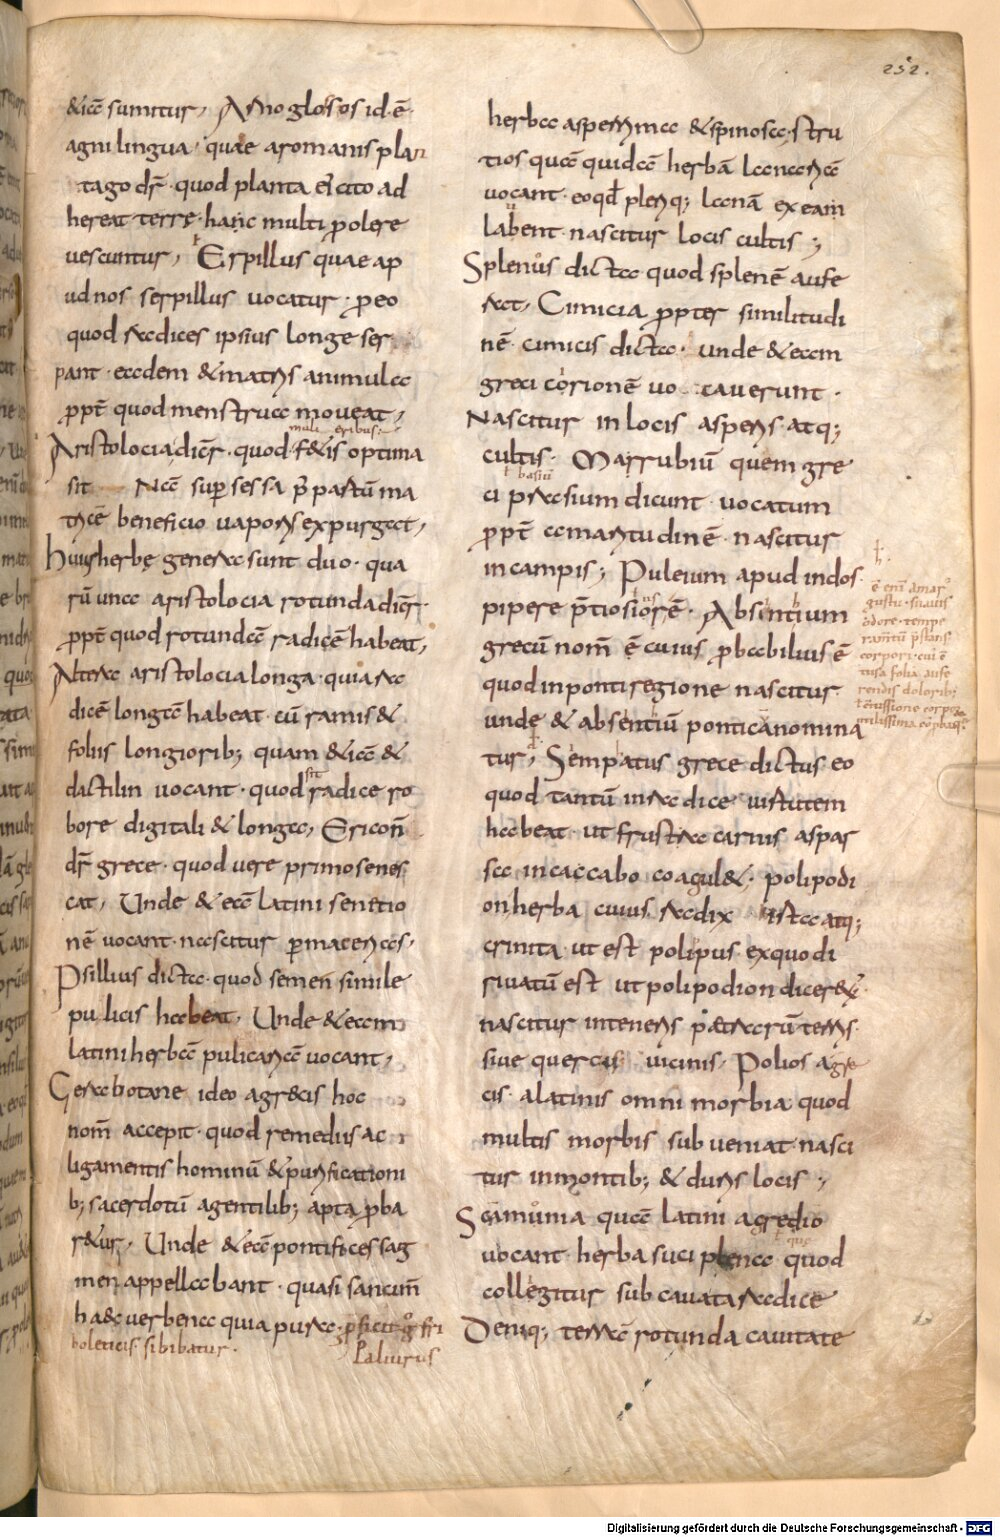 252.
&iā sumitur, Arnoglosos id ē
agni lingua quae a romanis plan
tago dr̄ quod planta ei cito ad
hereat terrę hanc multi p̄ olere
uescuntur, Erpillus quae ap
ud nos serpillus uocatur p eo
quod radices ipsius longe ser
pant eadem & matris animula
ppt̄ quod menstrua moueat,
mulieribus
Aristolocia dicr̄ quod f&is optima
sit Nā sup sessa
tricē beneficio uaporis expurgat,
huius herbę genera sunt duo qua
rū una aristolocia rotunda dicr̄
ppt̄ quod rotundā radicē habeat,
Altera aristolocia longa quia ra
dicē longā habeat cū ramis &
foliis longiorib; quam &iā &
dactilin uocant quod radice ro
sit
bore digitali & longa, Ericon̄
dr̄ grece quod uere primo senes
cat, Unde & eā latini senetio
nē uocant nascitur p macerias,
Psillius dicta quod semen simile
pulicis habeat, Unde & eam
latini herbā pulicariā uocant,
Gerabotane ideo a grecis hoc
nom̄ accepit quod remediis ac
ligamentis hominū & purificationi
b; sacerdotū a gentilib; apta pba
r&ur, Unde & eā pontifices sag
men appellabant quasi sancim̄
haec uerbena quia pura
sibibatur
Paliurus
herba asperrima & spinosa, stru
tios quā quidā herbā lanariā
uocant eo qd plerūq; lanā ex ea in
labent nascitur locis cultis;
Splenus dicta quod splenē aufe
rat, Cimicia ppter similitudi
nē cimicis dicta unde & eam
greci corionē uocauerunt
Nascitur in locis asperis atq;
cultis Marrubiū quem gre
ł basiū
ci prasium dicunt uocatum
ppt̄ amaritudinē nascitur
in campis; Puleium apud indos
pipere p̄tiosiorē Absintium
grecū nom̄ ē cuius pbabilius ē
quod in ponti regione nascitur
unde & absentiū ponticā nomina
tur, Sempatus grece dictus eo
quod tantū in radice uirtutem
habeat ut frustra carnis aspar
sa in caccabo coagul& polipodi
on herba cuius radix istaatq;
crinita ut est polipus ex quo di
riuatū est ut polipodion dicer&r
nascitur in teneris p&trarū terris
siue quercus uicinis Polios a gre
cis a latinis omni morbia quod
multis morbis subueniat nasci
tur in montib; & duris locis;
Scamunia quā latini agredio
uocant herba suci plena quod
ł que
collegitur sub cauata radice
Deniq; terra rotunda cauitate
ē eni amar
gustu suauis
odore tempe
corpori cui ē
tusa folia aufe
rendis dolorib;